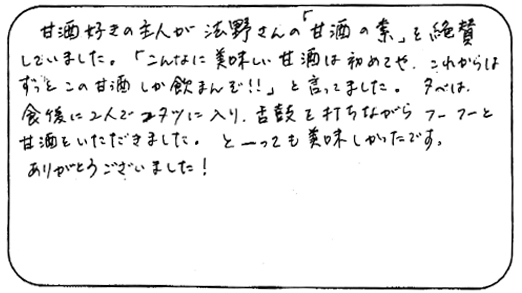 甘酒好きの主人が法野さんの「甘酒の素」を絶賛
していました。「こんなに美味しい甘酒は初めてや、これからは
ずっとこの甘酒しか飲まんぞ!!」と言ってました。夕べは、
食後に2人でコタツに入り、舌鼓を打ちながらフーフーと
甘酒をいただきました。と一っても美味しかったです。
ありがとうございました!